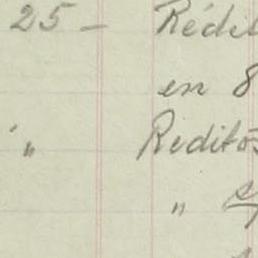 25 - Rédit
en 8
" Reditos
"